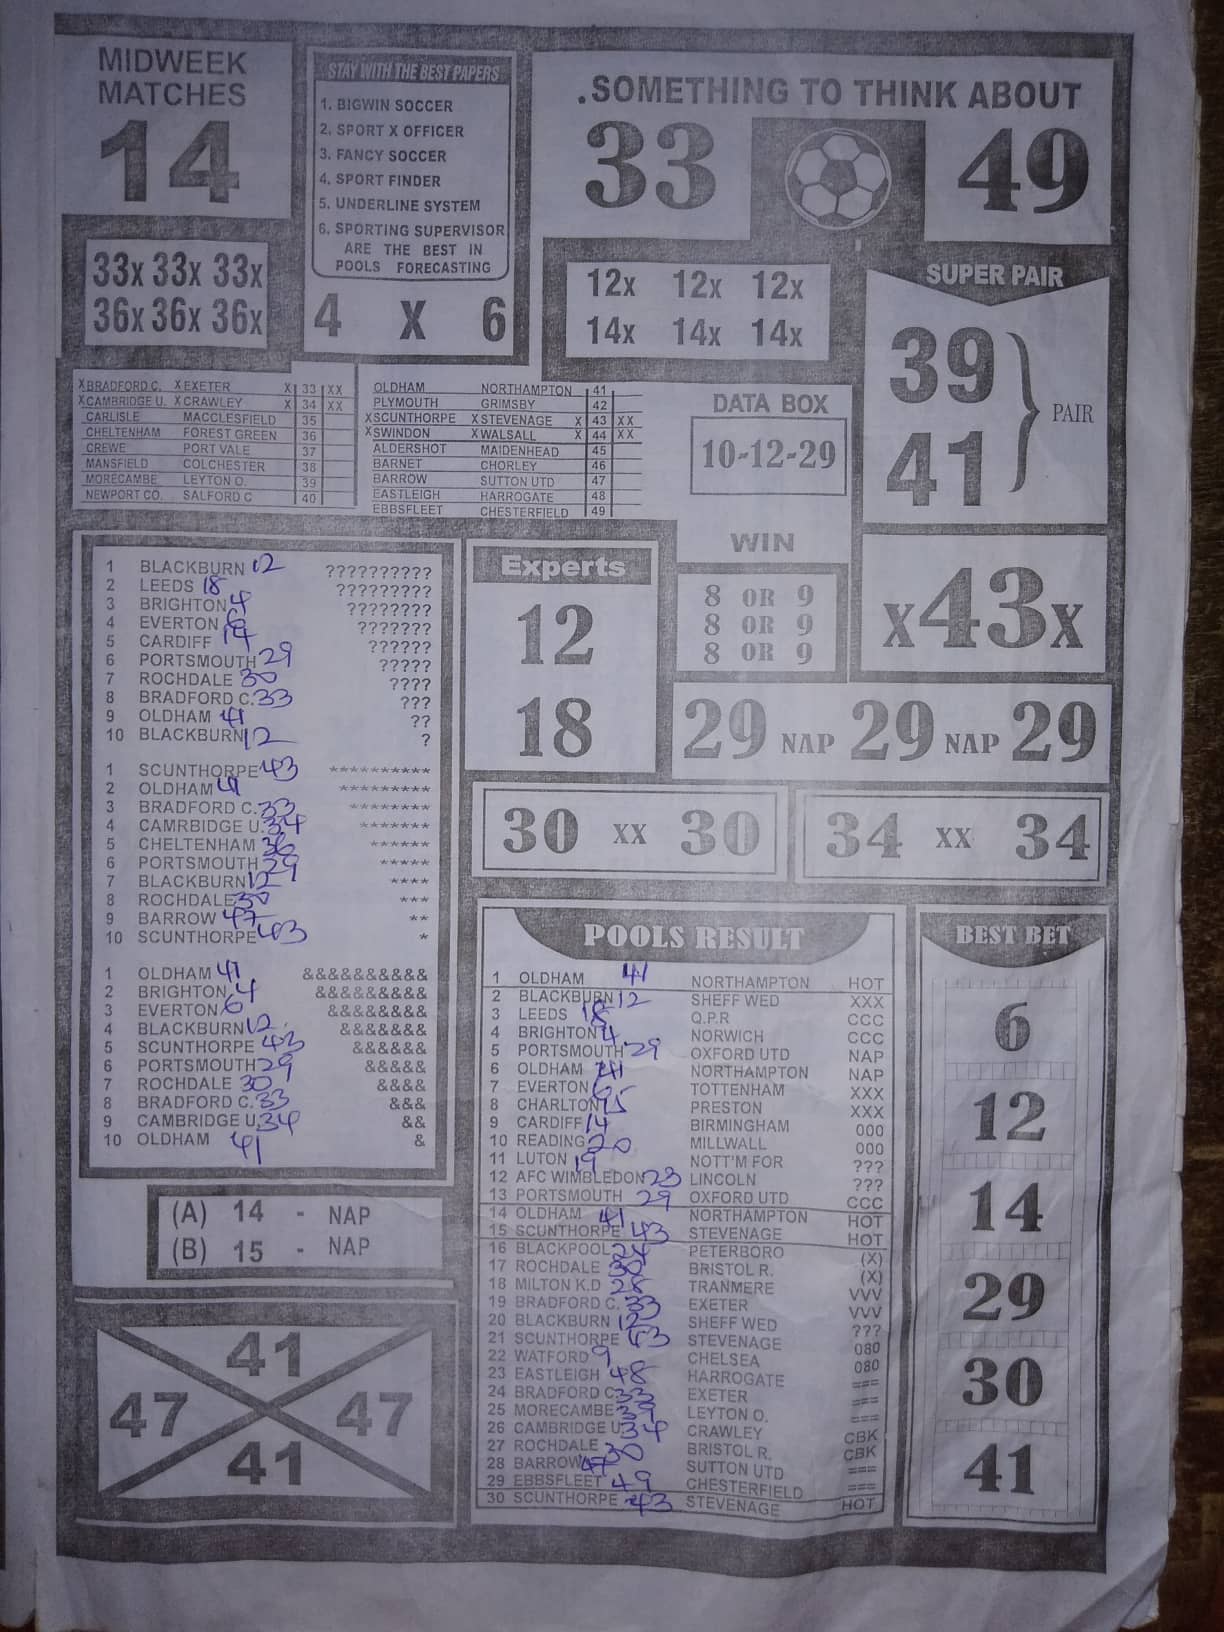 MIDWEEK
MATCHES
14
STAY WITH THE BEST PAPERS
1. BIGWIN SOCCER
2. SPORT X OFFICER
3. FANCY SOCCER
4. SPORT FINDER
5. UNDERLINE SYSTEM
6. SPORTING SUPERVISOR
ARE THE BEST IN
POOLS FORECASTING
4 X 6
.SOMETHING TO THINK ABOUT
33 49
33x 33x 33x
36x 36x 36x
12x 12x 12x
14x 14x 14x
SUPER PAIR
39
41
PAIR
X BRADFORD C. X EXETER X 33 XX
X CAMBRIDGE U. X CRAWLEY X 34 XX
CARLISLE MACCLESFIELD 35
CHELTENHAM FOREST GREEN 36
CREWE PORT VALE 37
MANSFIELD COLCHESTER 38
MORECAMBE LEYTON O. 39
NEWPORT CO. SALFORD C 40
OLDHAM NORTHAMPTON 41
PLYMOUTH GRIMSBY 42
X SCUNTHORPE X STEVENAGE X 43 XX
X SWINDON X WALSALL X 44 XX
ALDERSHOT MAIDENHEAD 45
BARNET CHORLEY 46
BARROW SUTTON UTD 47
EASTLEIGH HARROGATE 48
EBBSFLEET CHESTERFIELD 49
DATA BOX
10-12-29
WIN
8 OR 9
8 OR 9
8 OR 9
X43X
Experts
12
18
29 NAP 29 NAP 29
30 XX 30
34 XX 34
1 BLACKBURN 12 ??????????
2 LEEDS 18 ?????????
3 BRIGHTON 4 ????????
4 EVERTON 6 ???????
5 CARDIFF 14 ??????
6 PORTSMOUTH 29 ?????
7 ROCHDALE 30 ????
8 BRADFORD C. 33 ???
9 OLDHAM 41 ??
10 BLACKBURN 12 ?
1 SCUNTHORPE 43 **********
2 OLDHAM 41 *********
3 BRADFORD C. 33 ********
4 CAMRBIDGE U. 34 *******
5 CHELTENHAM 36 ******
6 PORTSMOUTH 29 *****
7 BLACKBURN 12 ****
8 ROCHDALE 30 ***
9 BARROW 47 **
10 SCUNTHORPE 43 *
1 OLDHAM 41 &&&&&&&&&&
2 BRIGHTON 4 &&&&&&&&&
3 EVERTON 6 &&&&&&&&
4 BLACKBURN 12 &&&&&&&
5 SCUNTHORPE 43 &&&&&&
6 PORTSMOUTH 29 &&&&&
7 ROCHDALE 30 &&&&
8 BRADFORD C. 33 &&&
9 CAMBRIDGE U. 34 &&
10 OLDHAM 41 &
(A) 14 - NAP
(B) 15 - NAP
41
47 47
41
POOLS RESULT
1 OLDHAM 41 NORTHAMPTON HOT
2 BLACKBURN 12 SHEFF WED XXX
3 LEEDS 18 Q.P.R CCC
4 BRIGHTON 4 NORWICH CCC
5 PORTSMOUTH 29 OXFORD UTD NAP
6 OLDHAM 41 NORTHAMPTON NAP
7 EVERTON 6 TOTTENHAM XXX
8 CHARLTON 15 PRESTON XXX
9 CARDIFF 14 BIRMINGHAM 000
10 READING 20 MILLWALL 000
11 LUTON 19 NOTT'M FOR ???
12 AFC WIMBLEDON 23 LINCOLN ???
13 PORTSMOUTH 29 OXFORD UTD CCC
14 OLDHAM 41 NORTHAMPTON HOT
15 SCUNTHORPE 43 STEVENAGE HOT
16 BLACKPOOL 24 PETERBORO (X)
17 ROCHDALE 30 BRISTOL R. (X)
18 MILTON K.D 28 TRANMERE VVV
19 BRADFORD C. 33 EXETER VVV
20 BLACKBURN 12 SHEFF WED ???
21 SCUNTHORPE 43 STEVENAGE 080
22 WATFORD 9 CHELSEA 080
23 EASTLEIGH 48 HARROGATE ===
24 BRADFORD C 33 EXETER ===
25 MORECAMBE 39 LEYTON O.
26 CAMBRIDGE U. 34 CRAWLEY CBK
27 ROCHDALE 30 BRISTOL R. CBK
28 BARROW 47 SUTTON UTD ===
29 EBBSFLEET 49 CHESTERFIELD ===
30 SCUNTHORPE 43 STEVENAGE HOT
BEST BET
6
12
14
29
30
41